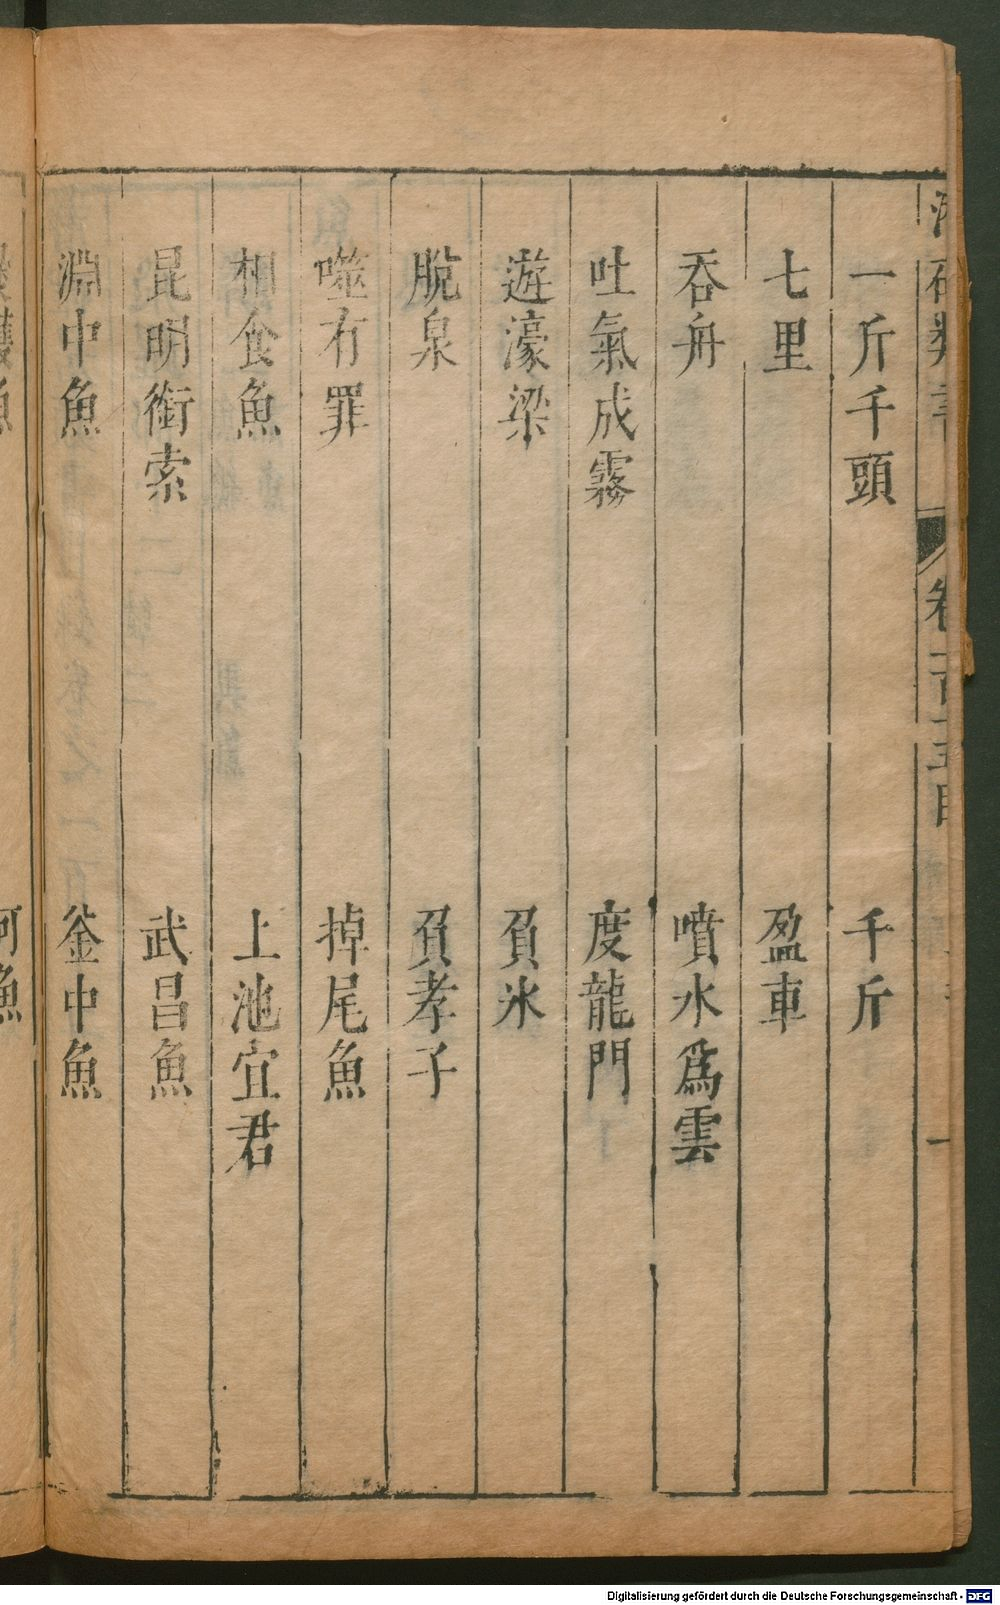 一斤千頭　千斤
七里　盈車
吞舟　噴水爲雲
吐氣成霧　度龍門
遊濠梁　負氷
脫泉　負孝子
噬有罪　掉尾魚
相食魚　上池宜君
昆明銜索　武昌魚
淵中魚　釜中魚
Digitalisierung gefördert durch die Deutsche Forschungsgemeinschaft - DFG